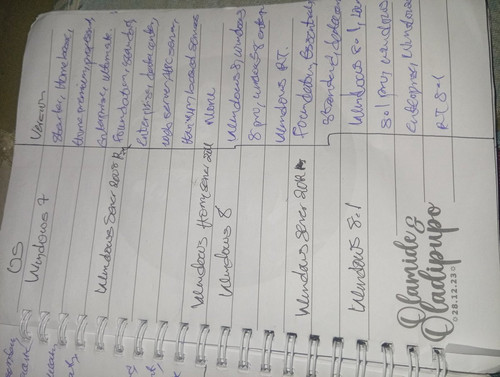 OS Version
Windows 7 Starter, Home basic,
Home premium, professional,
Enterprise, ultimate.
Windows Server 2008 R2 Foundation, standard,
Enterprise, data center,
web server, HPC server,
Windows Home server 2011 None
Windows 8 Windows 8, windows
8 pro, windows 8 enter
Windows RT.
Windows Server 2012 Foundation, Essentials
standard, datacenter
Windows 8.1 Windows 8.1, win
8.1 pro, windows
enterprise, Windows
RT 8.1
Olamide &
Oladipupo
28.12.23